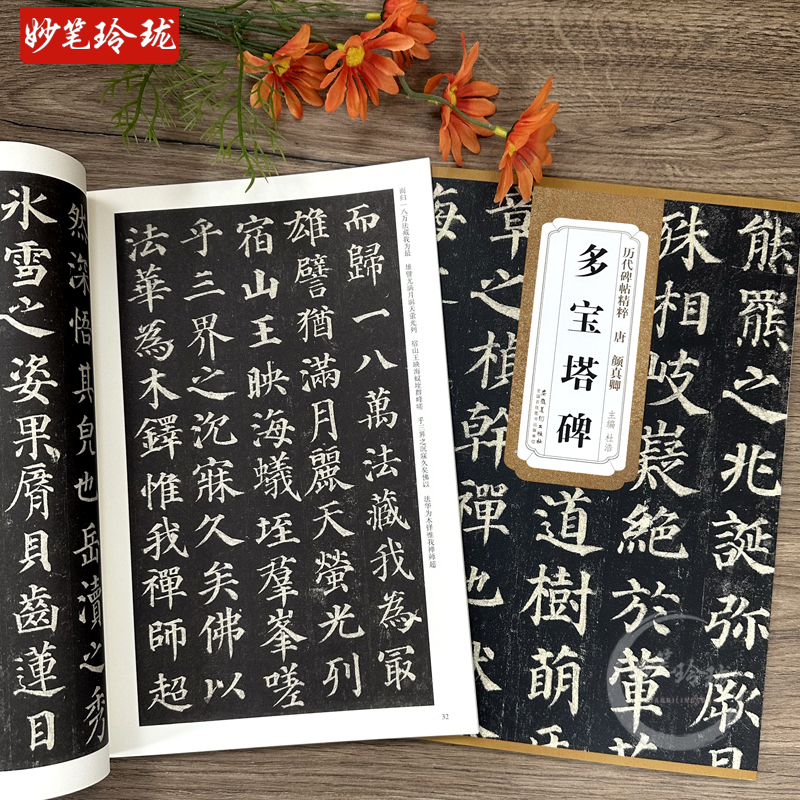 妙笔玲珑
然深悟其皃也岳瀆之秀
氷雪之姿果脣貝齒蓮目
而归一八万法藏我为最 雄譬犹满月丽天萤光列 宿山王映海蚁垤群峰嗟 乎三界之沉寐久矣佛以 法华为木铎惟我禅师超
而歸一八萬法藏我為冣
雄譬猶滿月麗天螢光列
宿山王映海蟻垤羣峯嗟
乎三界之沉寐久矣佛以
法華為木鐸惟我禪師超
32
历代碑帖精粹 唐 颜真卿
多宝塔碑
主编 杜浩
安徽美术出版社
熊羆之兆誕弥厥
殊相岐嶷絕於葷
道樹萌
章之楨幹禪也
海
玲珑